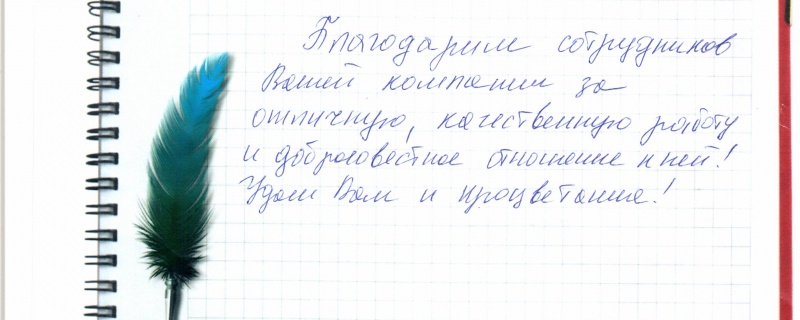 Благодарим сотрудников
Вашей компании за
отличную, качественную работу
и добросовестное отношение к ней!
Удачи Вам и процветания!